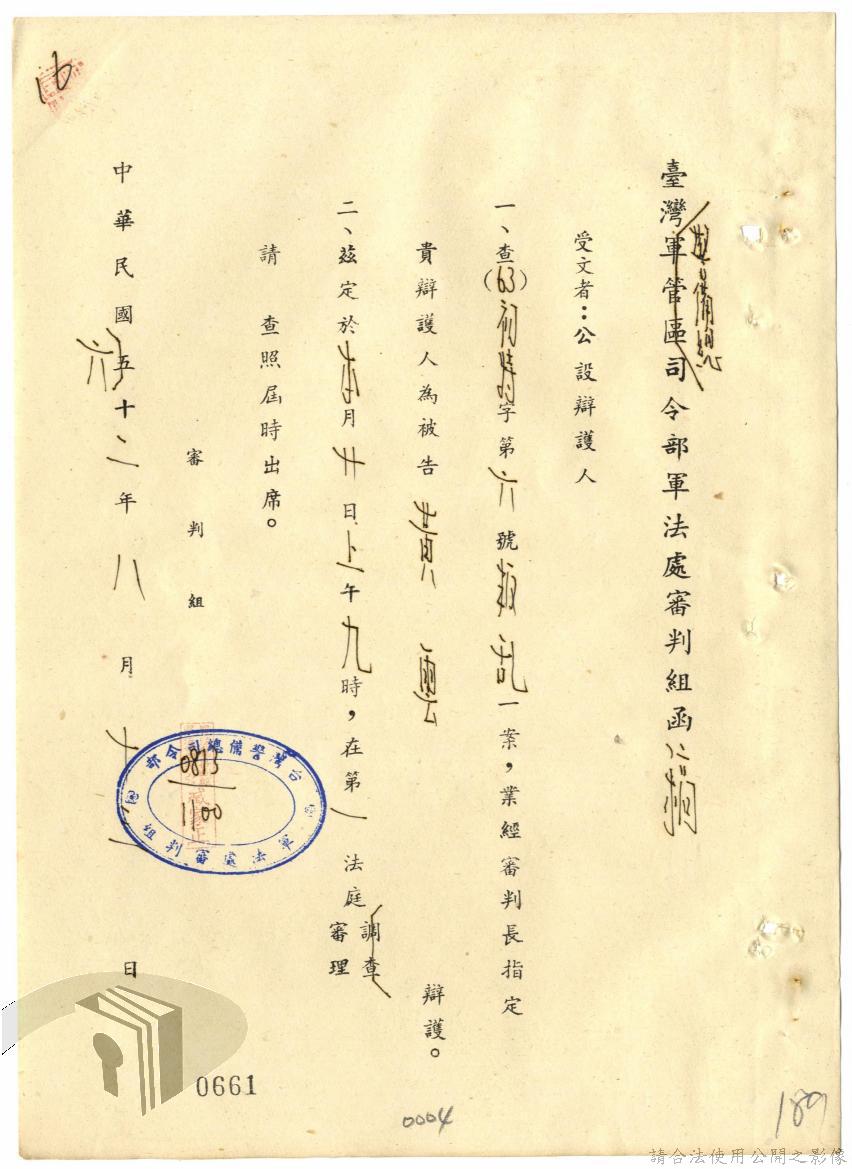 臺灣軍管區司令部軍法處審判組函
警備總
受文者：公設辯護人
一、查(63)初特字第六號叛乱一案，業經審判長指定
貴辯護人為被告黃雲辯護。
二、茲定於本月廿日上午九時，在第一法庭調查審理
請查照屆時出席。
審判組
中華民國五十二年八月十日
六
台灣警備總司令部
軍法處審判組
0813
1100
16
0661
0004
189
請合法使用公開之影像